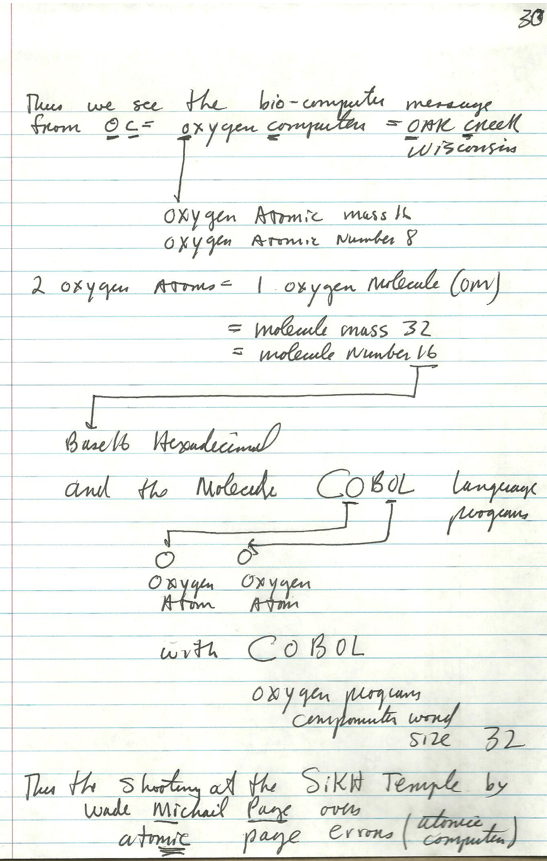 30
Thus we see the bio-computer message
from OC = oxygen computers = OAK creek
Wisconsin
oxygen Atomic mass 16
oxygen Atomic Number 8
2 oxygen Atoms = 1 oxygen Molecule (om)
= molecule mass 32
= molecule Number 16
Base 16 Hexadecimal
and the Molecule COBOL language
programs
O O
Oxygen Oxygen
Atom Atom
with COBOL
oxygen programs
computer word
size 32
Thus the shooting at the SiKH Temple by
Wade Michail Page over
atomic page errors (atomic
computers)